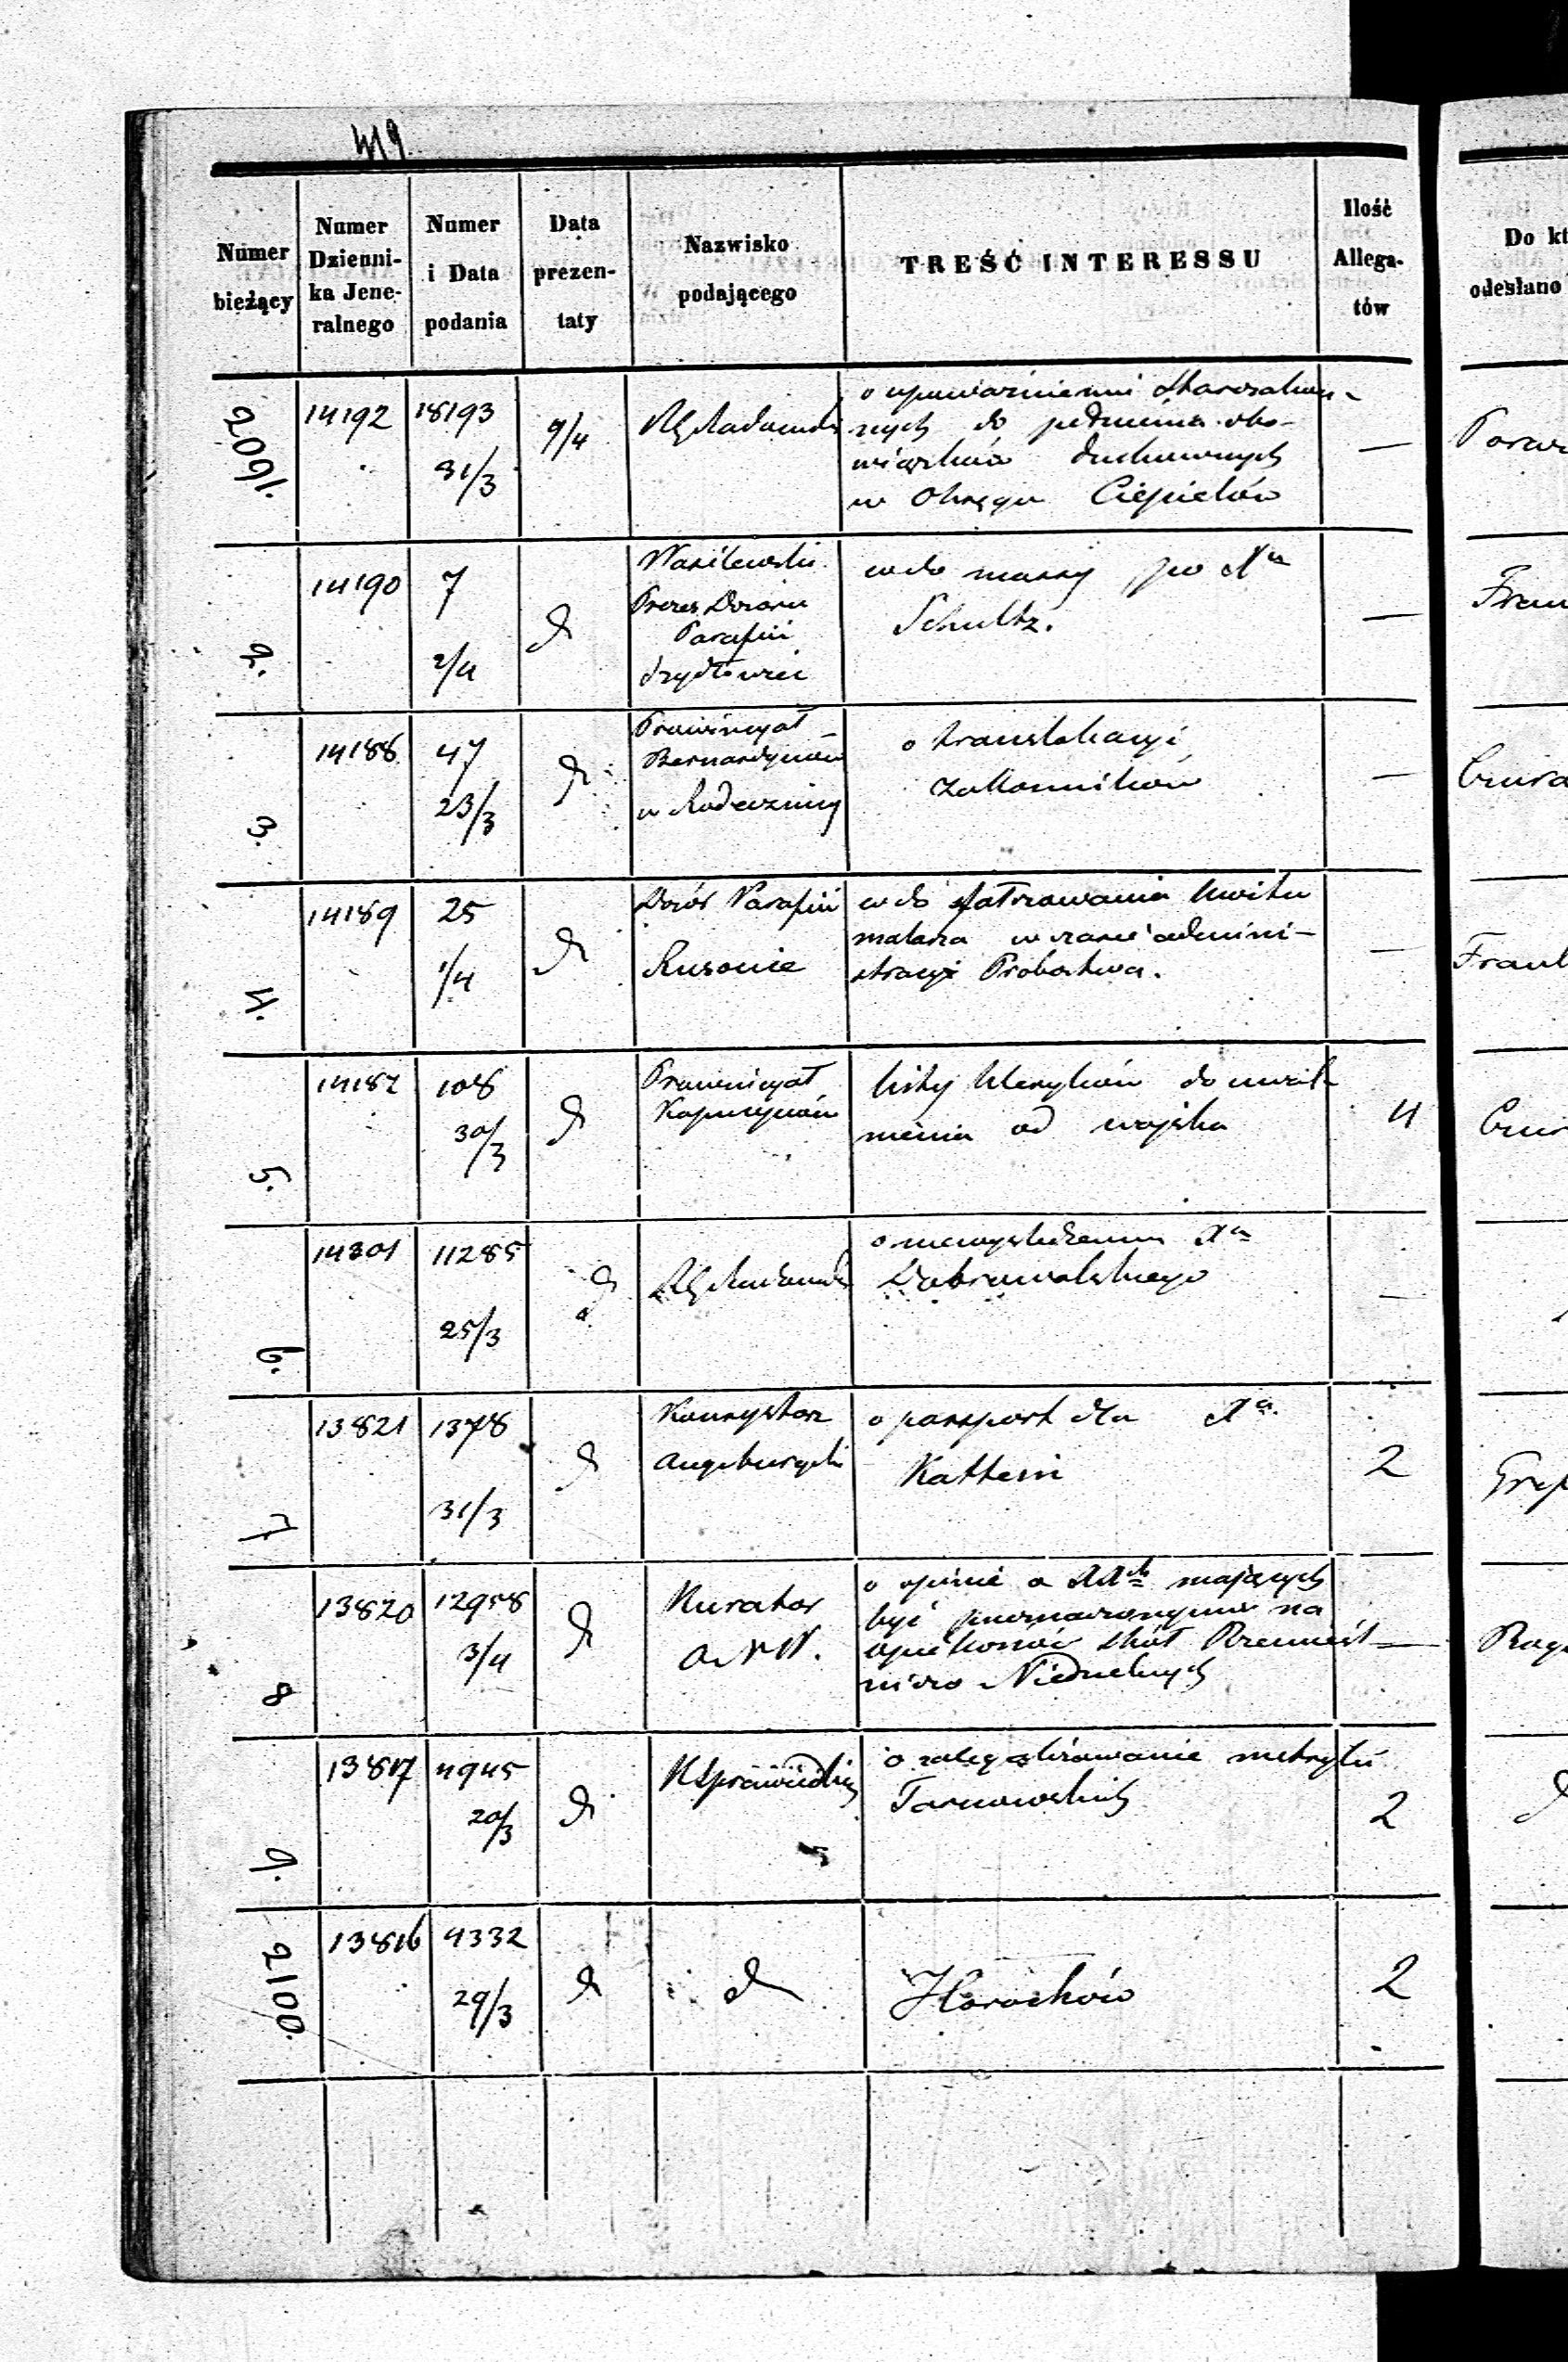 419
Numer bieżący
Numer Dzienni-ka Jene-ralnego
Numer i Data podania
Data prezen-taty
Nazwisko podającego
TREŚĆ INTERESSU
Ilość Allega-tów
Do kt
odesłano
2091. 14192 18193 31/3 9/4
o upoważnienui
nych do pełnienia obo-
wiązków duchownych
w Okręgu Ciepielów
—
2. 14190 7 2/4 d
Wasilewski
Prezes Dozoru
Parafii
Szydłowiec
wdo massy po Xu
Schultz.
—
3. 14188 47 23/3 d
Prowincyał
Bernardynów
w
o translokacyi
zakonników
—
4. 14189 25 1/4 d
Dozór Parafii
Rusocie
wdo kwitu
malarza w czasie admini-
stracyi Probostwa.
—
5. 14187 108 30/3 d
Prowincyał
Kapucynów
listy kleryków do uwol
nienia od wojska
4
6. 14301 11285 25/3 d
Xa
Dobrowolskiego
—
7 13821 1378 31/3 d
Konsystorz
Augsburgski
o passport dla Xa.
Kattein
2
8 13820 12958 3/4 d
Kurator
O.N.W.
o opinie o XXch mających
być na
opiekunów szkół Rzemieśl—
niczo Niedzielnych
9. 13817 4945 20/3 d
K Sprawiedliw
o zalegalizowanie metryki
Tarnowskich
2
2100. 13816 4332 29/3 d
d
Horochów
2